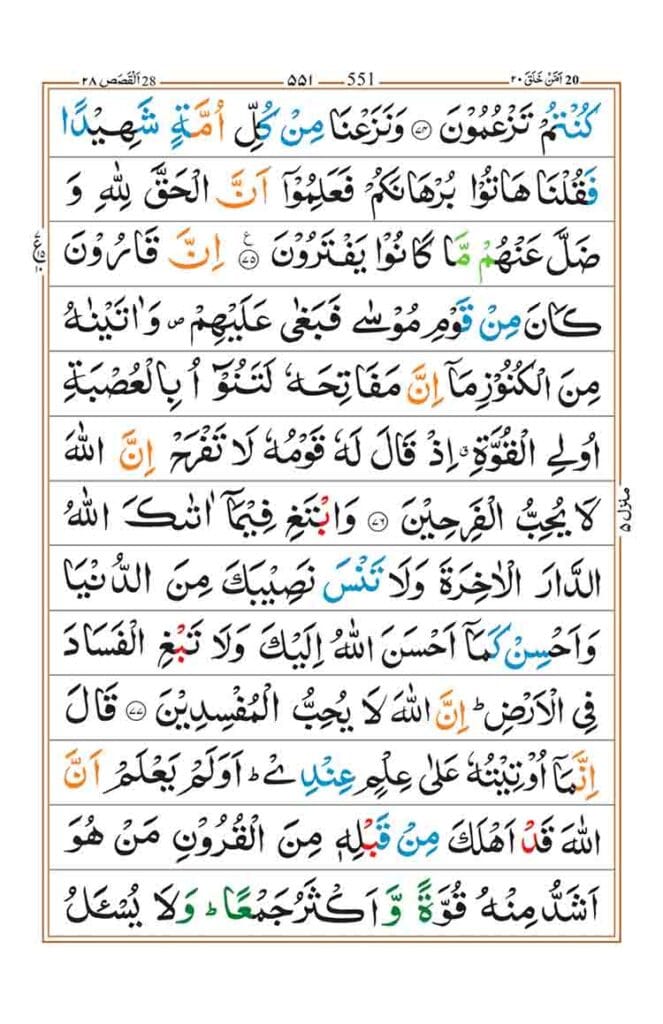 اَمَّنْ خَلَقَ ٢٠ 20 551 ٥٥١ اَلْقَصَص ٢٨ 28
كُنْتُمْ تَزْعُمُوْنَ ﴿٧٤﴾ وَنَزَعْنَا مِنْ كُلِّ اُمَّةٍ شَهِيْدًا
فَقُلْنَا هَاتُوْا بُرْهَانَكُمْ فَعَلِمُوْٓا اَنَّ الْحَقَّ لِلّٰهِ وَ
ضَلَّ عَنْهُمْ مَّا كَانُوْا يَفْتَرُوْنَ ﴿٧٥﴾ اِنَّ قَارُوْنَ
كَانَ مِنْ قَوْمِ مُوْسٰى فَبَغٰى عَلَيْهِمْ ۪ وَاٰتَيْنٰهُ
مِنَ الْكُنُوْزِ مَآ اِنَّ مَفَاتِحَهٗ لَتَنُوْٓاُ بِالْعُصْبَةِ
اُولِي الْقُوَّةِ ۗ اِذْ قَالَ لَهٗ قَوْمُهٗ لَا تَفْرَحْ اِنَّ اللّٰهَ
لَا يُحِبُّ الْفَرِحِيْنَ ﴿٧٦﴾ وَابْتَغِ فِيْمَآ اٰتٰىكَ اللّٰهُ
الدَّارَ الْاٰخِرَةَ وَلَا تَنْسَ نَصِيْبَكَ مِنَ الدُّنْيَا
وَاَحْسِنْ كَمَآ اَحْسَنَ اللّٰهُ اِلَيْكَ وَلَا تَبْغِ الْفَسَادَ
فِي الْاَرْضِ ؕ اِنَّ اللّٰهَ لَا يُحِبُّ الْمُفْسِدِيْنَ ﴿٧٧﴾ قَالَ
اِنَّمَآ اُوْتِيْتُهٗ عَلٰى عِلْمٍ عِنْدِيْ ؕ اَوَلَمْ يَعْلَمْ اَنَّ
اللّٰهَ قَدْ اَهْلَكَ مِنْ قَبْلِهٖ مِنَ الْقُرُوْنِ مَنْ هُوَ
اَشَدُّ مِنْهُ قُوَّةً وَّاَكْثَرُ جَمْعًا ؕ وَلَا يُسْـَٔلُ
منزل ٥